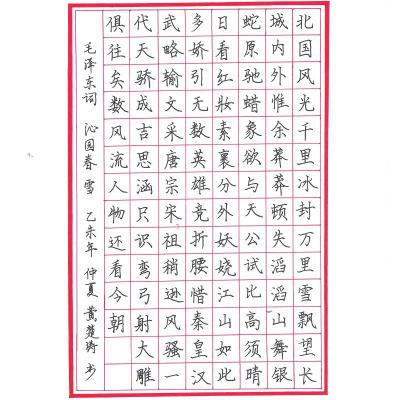 北国风光千里冰封万里雪飘望长
城内外惟余莽莽顿失滔滔山舞银
蛇原驰蜡象欲与天公试比高须晴
日看红妝素裹分外妖娆江山如此
多娇引无数英雄竞折腰惜秦皇汉
武略输文采唐宗宋祖稍逊风骚一
代天骄成吉思涵只识弯弓射大雕
俱往矣数风流人物还看今朝
毛泽东词 沁园春 雪 乙未年 仲夏 黄楚琦 书